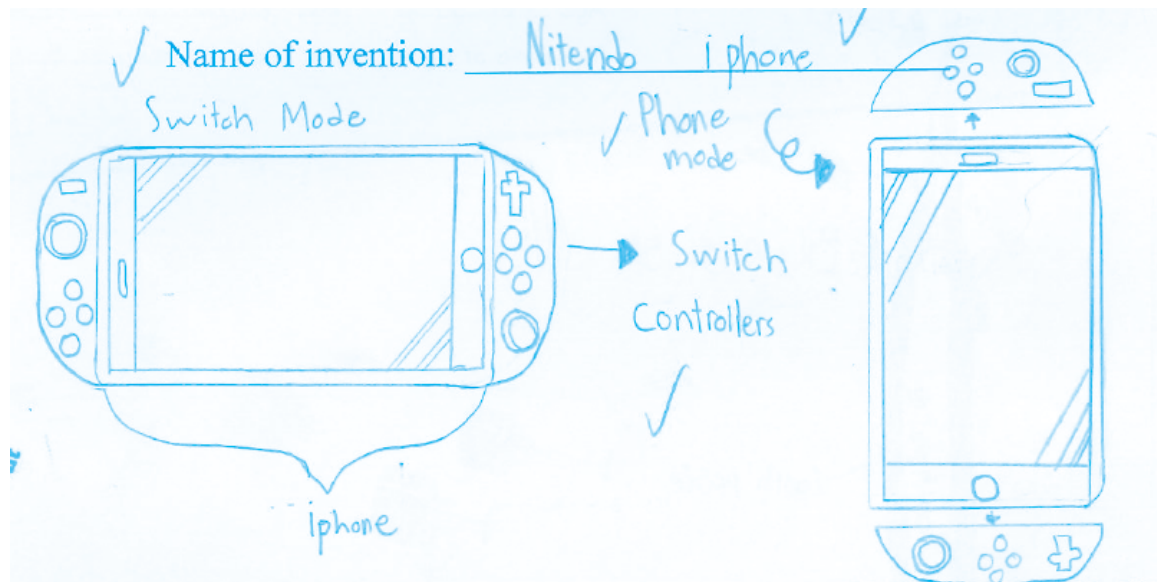 Name of invention: Nitendo iphone
Switch Mode
Phone
mode
Switch
Controllers
iphone